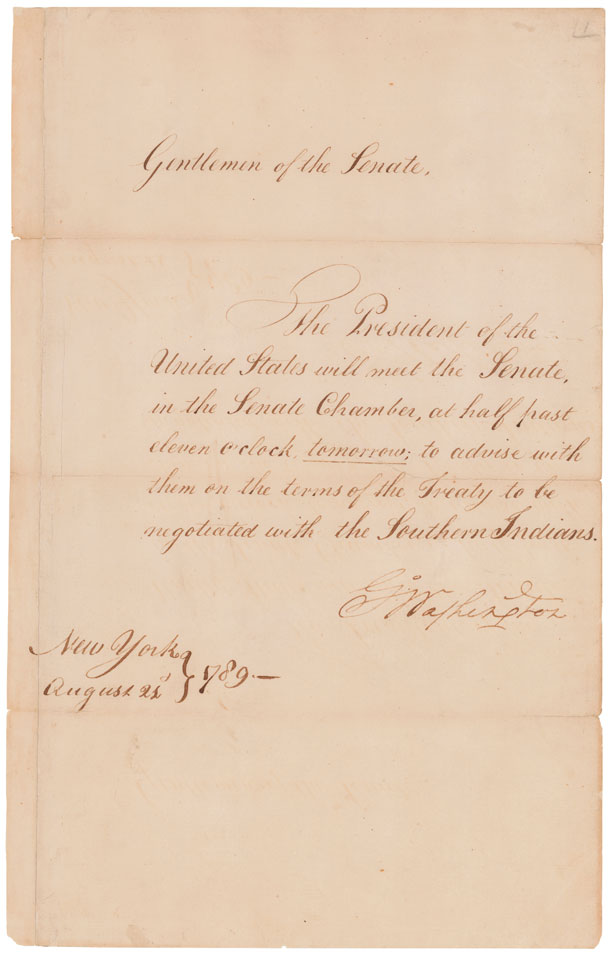 Gentlemen of the Senate.
The President of the
United States will meet the Senate,
in the Senate Chamber, at half past
eleven o'clock, tomorrow; to advise with
them on the terms of the Treaty to be
negotiated with the Southern Indians.
Go Washington
New York
August 21st } 1789.—